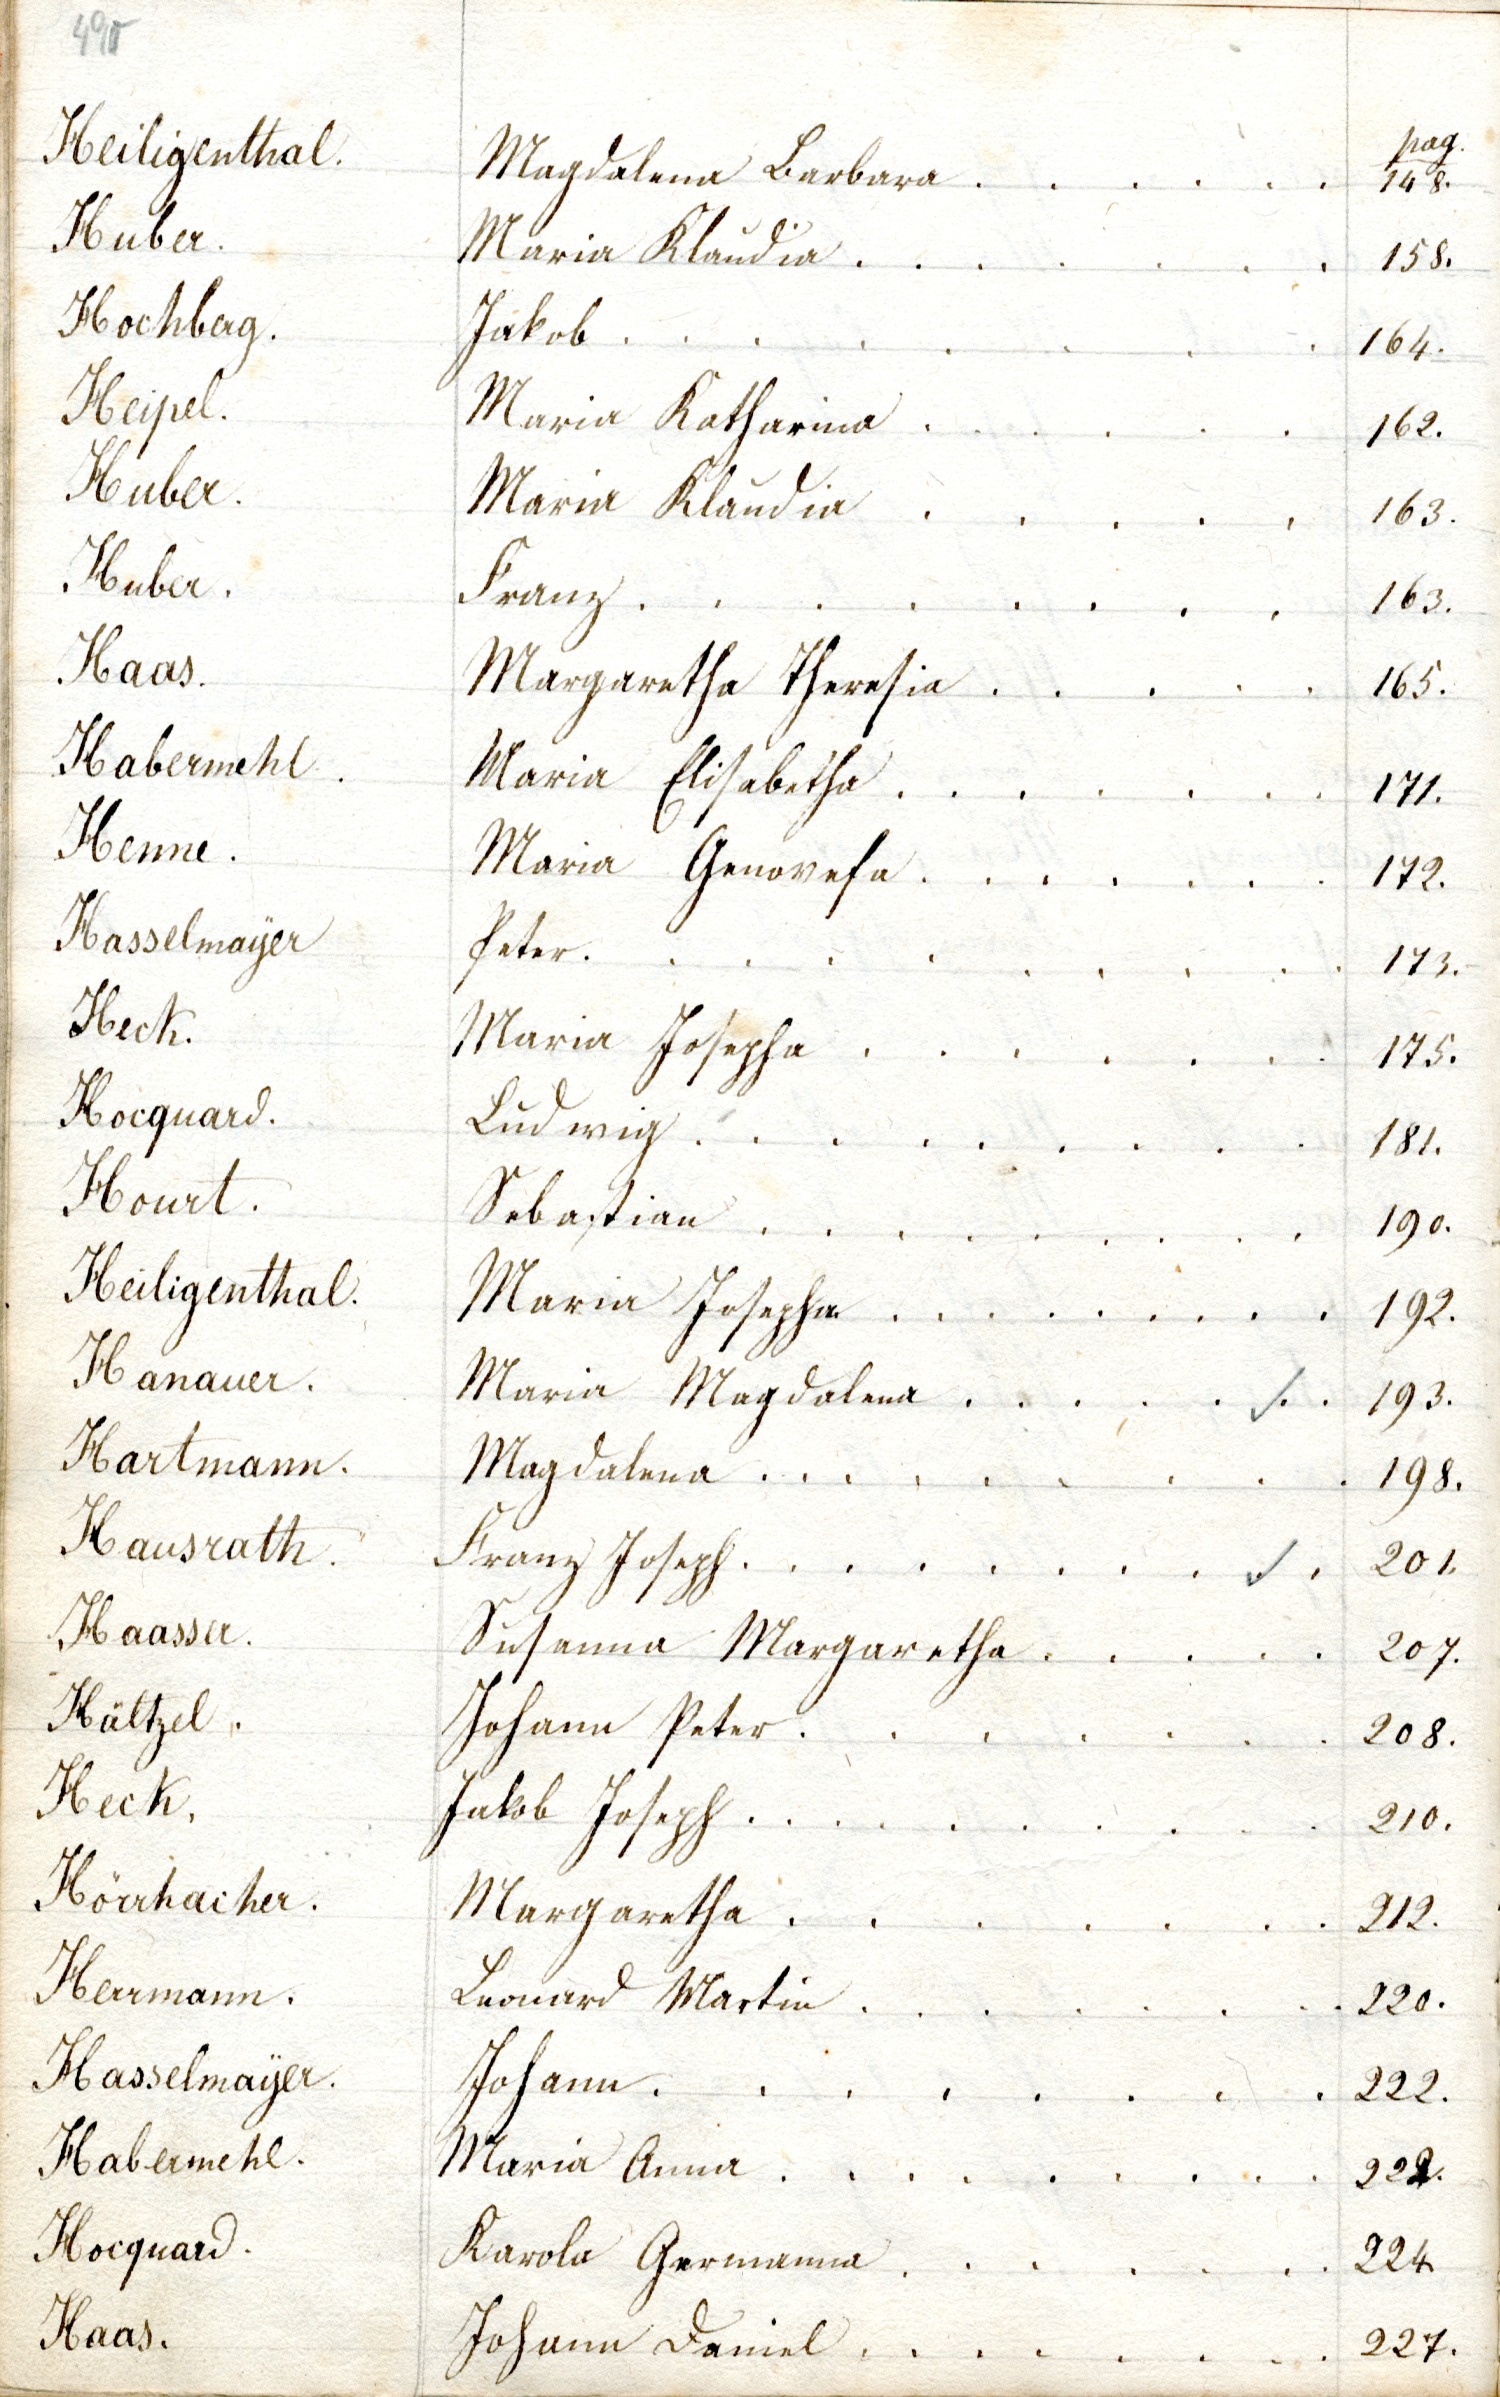 490
pag.
Heiligenthal. Magdalena Barbara . . . . . . 148.
Huber. Maria Klaudia . . . . . . . 158.
Hochberg. Jakob . . . . . . . . 164.
Heipel. Maria Katharina . . . . . . 162.
Huber. Maria Klaudia . . . . . 163.
Huber. Franz . . . . . . . . 163.
Haas. Margaretha Theresia . . . . . 165.
Habermehl. Maria Elisabetha . . . . . . . 171.
Henne. Maria Genovefa . . . . . . . 172.
Hasselmaÿer Peter . . . . . . . . . 173.
Heck. Maria Josepha . . . . . . . 175.
Hocquard. Ludwig . . . . . . . . 181.
Hourt. Sebastian . . . . . . . . . 190.
Heiligenthal. Maria Josepha . . . . . . . . . 192.
Hanauer. Maria Magdalena . . . . . . . 193.
Hartmann. Magdalena . . . . . . . . . 198.
Hausrath. Franz Joseph . . . . . . . . . 201.
Haasser. Susanna Margaretha . . . . . 207.
Hältzel. Johann Peter . . . . . . . 208.
Heck, Jakob Joseph . . . . . . . . . 210.
Hörrhacher. Margaretha . . . . . . . . 212.
Herrmann. Leonard Martin . . . . . . . . 220.
Hasselmaÿer. Johann . . . . . . . . 222.
Habermehl. Maria Anna . . . . . . . . . 222.
Hocquard. Karola Germanna . . . . . . . 224
Haas. Johann Daniel . . . . . . . . 227.